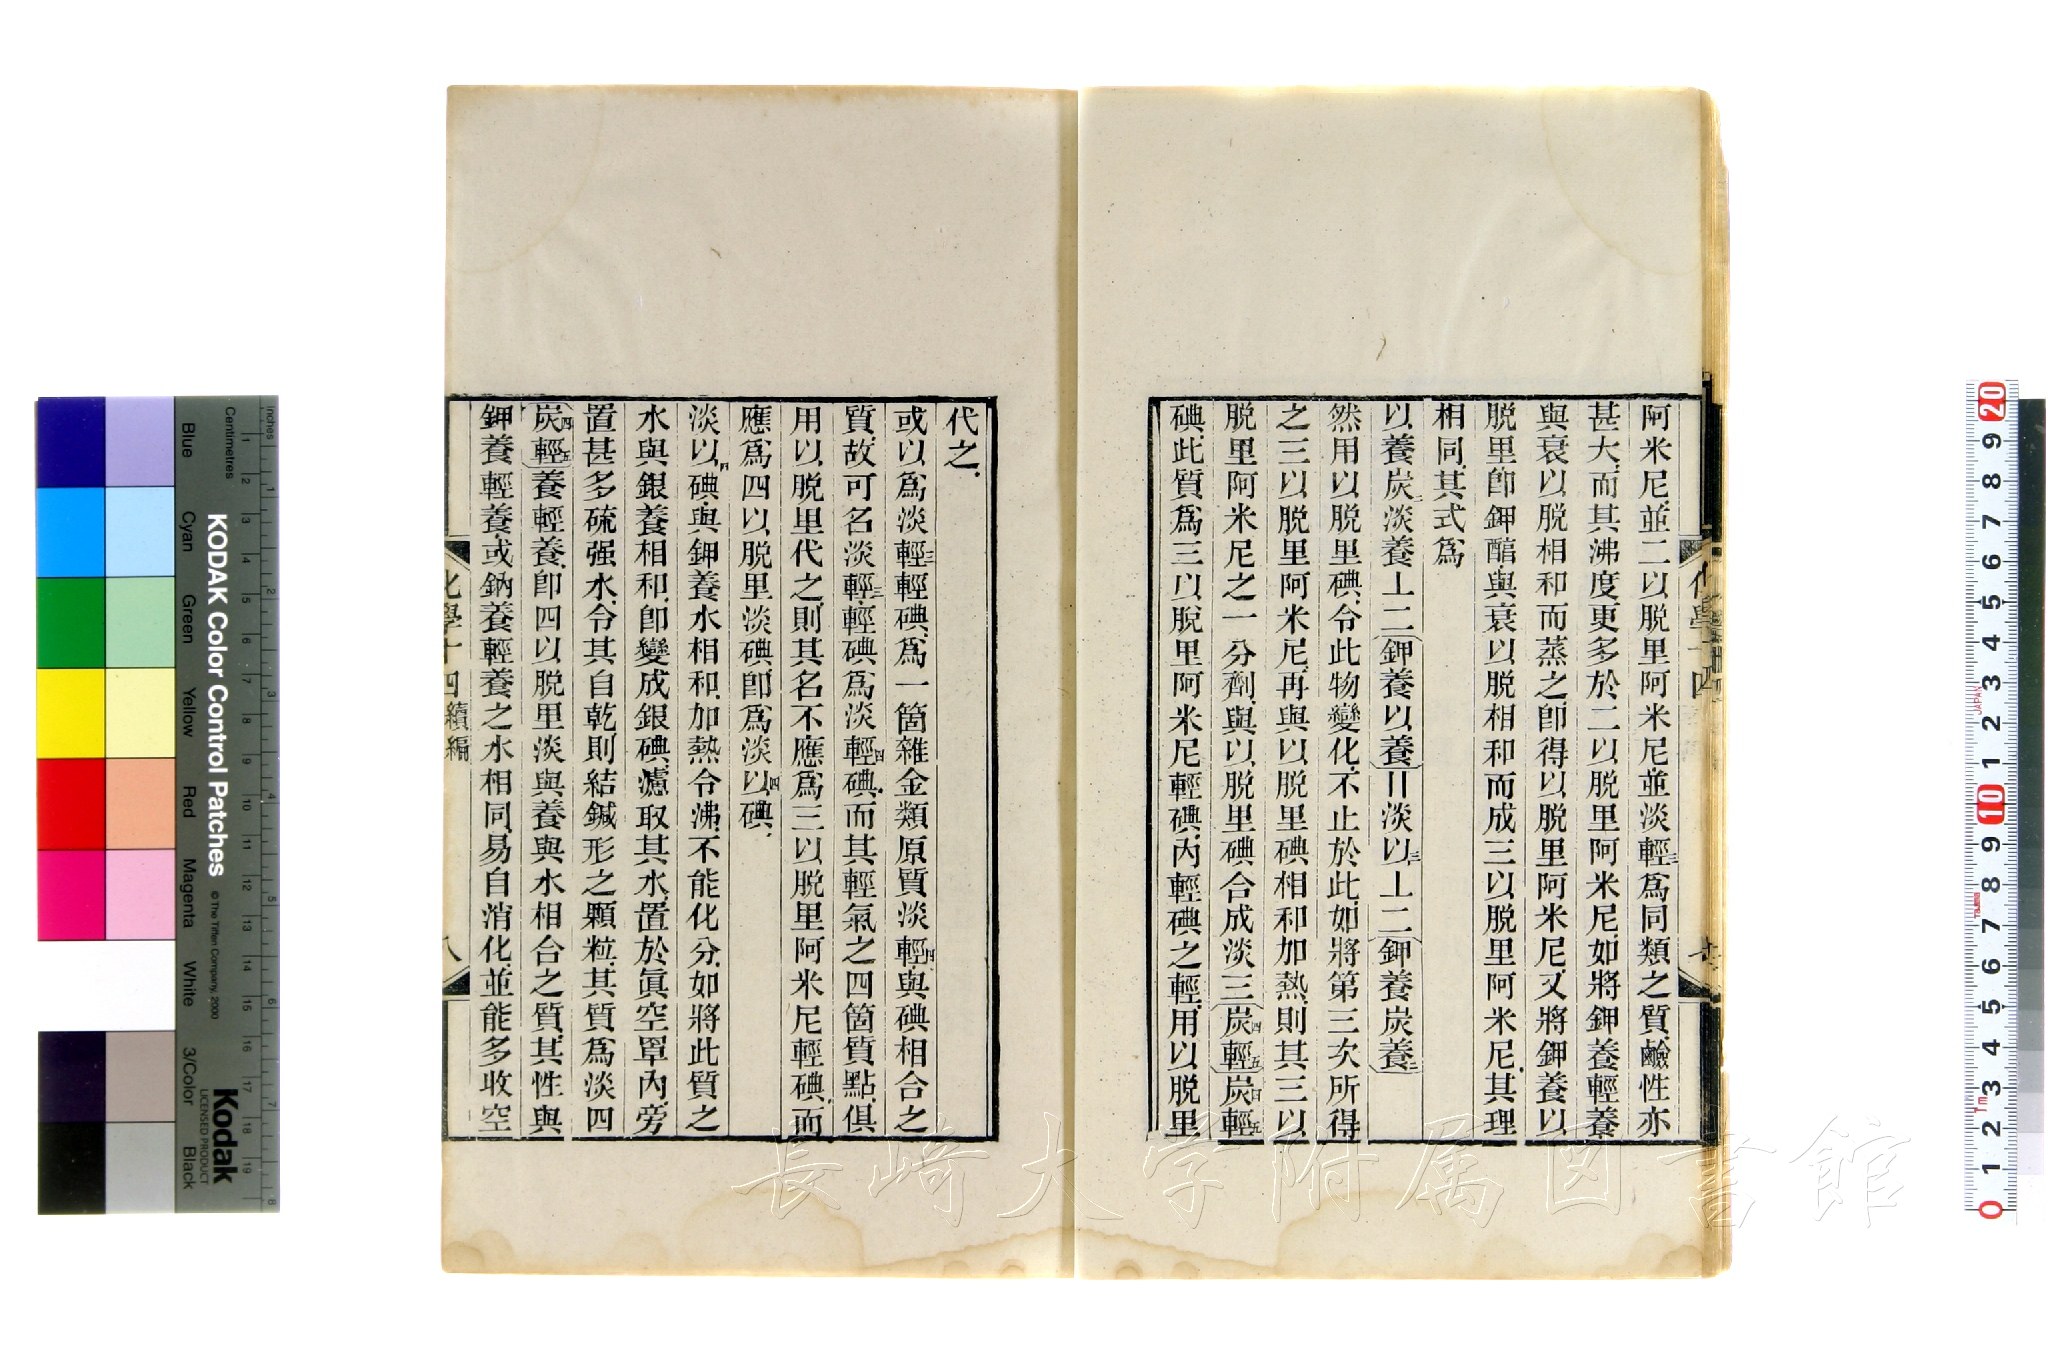 阿米尼、並二以脱里阿米尼、並淡輕三爲同類之質、鹼性亦
甚大、而其沸度更多於二以脱里阿米尼、如將鉀養輕養
與衰以脱相和而蒸之、卽得以脱里阿米尼、又將鉀養以
脱里卽鉀醕、與衰以脱相和而成三以脱里阿米尼、其理
相同、其式爲
以養炭二淡養⊥二(鉀養以養)〢淡以三⊥二(鉀養炭養二)
然用以脱里碘、令此物變化、不止於此、如將第三次所得
之三以脱里阿米尼、再與以脱里碘相和加熱、則其三以
脱里阿米尼之一分劑、與以脱里碘合成淡三(炭四輕五)炭四輕五
碘、此質爲三以脱里阿米尼輕碘、內輕碘之輕、用以脱里
代之、
或以爲淡輕三輕碘、爲一箇雜金類原質淡輕四、與碘相合之
質、故可名淡輕三、輕碘爲淡輕四碘、而其輕氣之四箇質點、俱
用以脱里代之、則其名不應爲三以脱里阿米尼輕碘、而
應爲四以脱里淡碘、卽爲淡以四碘、
淡以四碘、與鉀養水相和、加熱令沸、不能化分、如將此質之
水與銀養相和、卽變成銀碘、濾取其水、置於眞空罩內、旁
置甚多硫强水、令其自乾、則結鍼形之顆粒、其質爲淡四
(炭四輕五)養輕養、卽四以脱里淡與養與水相合之質、其性與
鉀養輕養、或鈉養輕養之水相同、易自消化、並能多收空
化學十四
續編
八
化學十四
KODAK Color Control Patches
© The Tiffen Company, 2000
Kodak
LICENSED PRODUCT
Inches
Centimetres
Blue
Cyan
Green
Yellow
Red
Magenta
White
3/Color
Black
長崎大学附属図書館
JAPAN